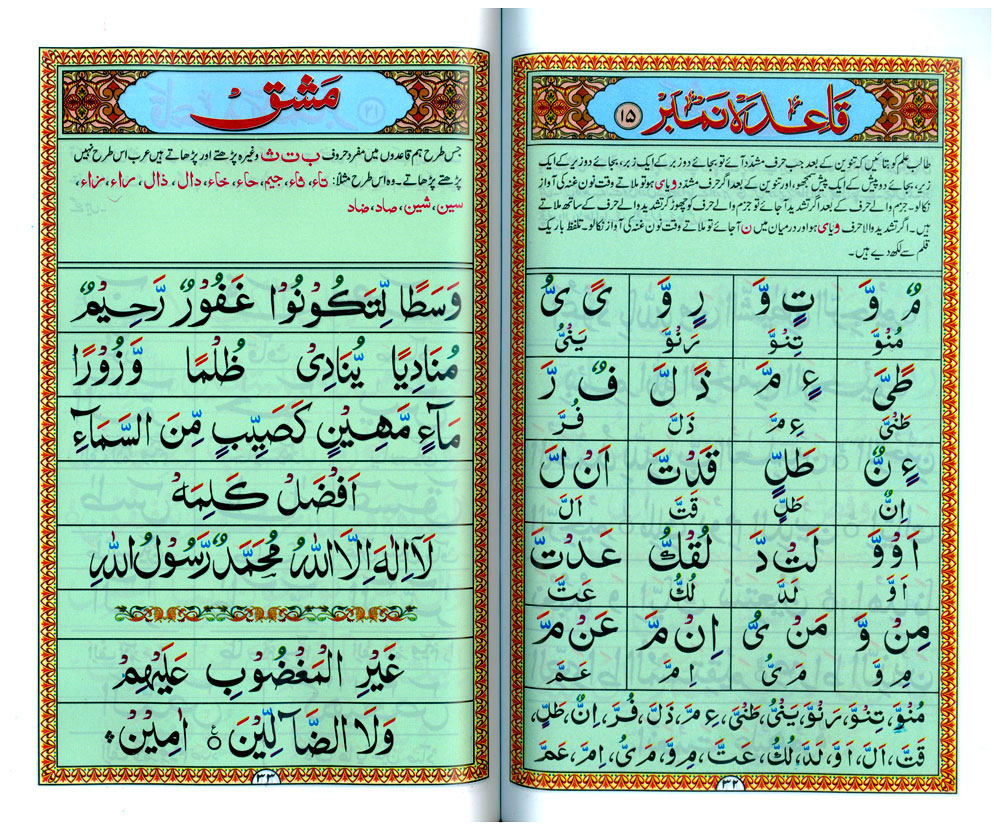 قاعدہ نمبر ۱۵
طالب علم کو بتائیں کہ تنوین کے بعد جب حرف مشدّد آئے تو بجائے دو زبر کے ایک زبر، بجائے دو زیر کے ایک
زیر، بجائے دو پیش کے ایک پیش سمجھو، اور تنوین کے بعد اگر حرف مشدّد و یا ی ہو تو ملاتے وقت نون غنہ کی آواز
نکالو۔ جزم والے حرف کے بعد اگر تشدید آ جائے تو جزم والے حرف کو چھوڑ کر تشدید والے حرف کے ساتھ ملاتے
ہیں۔ اگر تشدید والا حرف و یا ی ہو اور درمیان میں ن آ جائے تو ملاتے وقت نون غنہ کی آواز نکالو۔ تلفظ باریک
قلم سے لکھ دیے ہیں۔
مٌ وَّ تٍ وَّ رٍ وَّ یً یُّ
مُنْوَّ تِنْوَّ رَنْوَّ یَنْیُّ
طً یَّ ءٍ مَّ ذً لَّ فٌ رَّ
طَنْیَّ ءِ مَّ ذَلَّ فُرَّ
ءٍ نٌّ طَلٍّ قَدْتَّ اَنْ لَّ
اِنٌّ طَلٍّ قَتَّ اَلَّ
اَوْوَّ لَتْ دَّ لُقْكُّ عَدْتَّ
اَوَّ لَدَّ لُكُّ عَتَّ
مِنْ وَّ مَنْ یُّ اِنْ مَّ عَنْ مَّ
مِ وَّ مَ یُّ اِ مَّ عَمَّ
مُنْوَّ، تِنْوَّ، رَنْوَّ، یَنْیُّ، طَنْیَّ، ءِ مَّ، ذَلَّ، فُرَّ، اِنٌّ، طَلٍّ،
قَتَّ، اَلَّ، اَوَّ، لَدَّ، لُكُّ، عَتَّ، مِ وَّ، مَ یُّ، اِ مَّ، عَمَّ
۳۲
مشق
جس طرح ہم قاعدوں میں مفرد حروف ب ت ث وغیرہ پڑھتے اور پڑھاتے ہیں عرب اس طرح نہیں
پڑھتے پڑھاتے۔ وہ اس طرح مثلاً: تاء، ثاء، جیم، حاء، خاء، دال، ذال، راء، زاء،
سین، شین، صاد، ضاد
وَسَطًا لِّتَكُوْنُوْا غَفُوْرٌ رَّحِیْمٌ
مُنَادِیًا یُّنَادِیْ ظُلْمًا وَّزُوْرًا
مَآءٍ مَّهِیْنٍ كَصَیِّبٍ مِّنَ السَّمَآءِ
اَفْضَلُ كَلِیْمَهْ
لَآ اِلٰهَ اِلَّا اللّٰهُ مُحَمَّدٌ رَّسُوْلُ اللّٰهِ
غَیْرِ الْمَغْضُوْبِ عَلَیْهِمْ
وَلَا الضَّآلِّیْنَ ۝ اٰمِیْنْ
۳۳